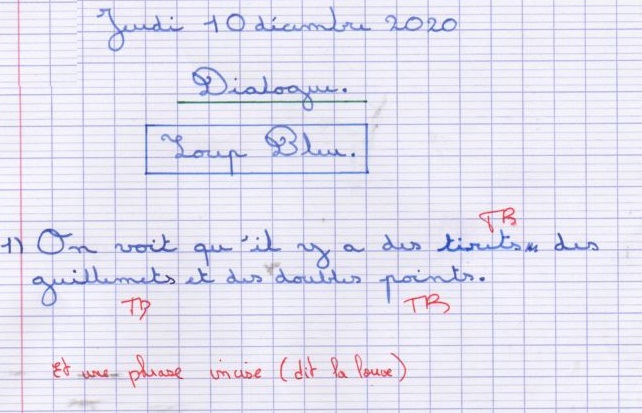 Jeudi 10 décembre 2020
Dialogue.
Loup Bleu.
TB
1) On voit qu'il y a des tirets, des
guillemets et des doubles points.
TB TB
Et une phrase incise (dit la louve)